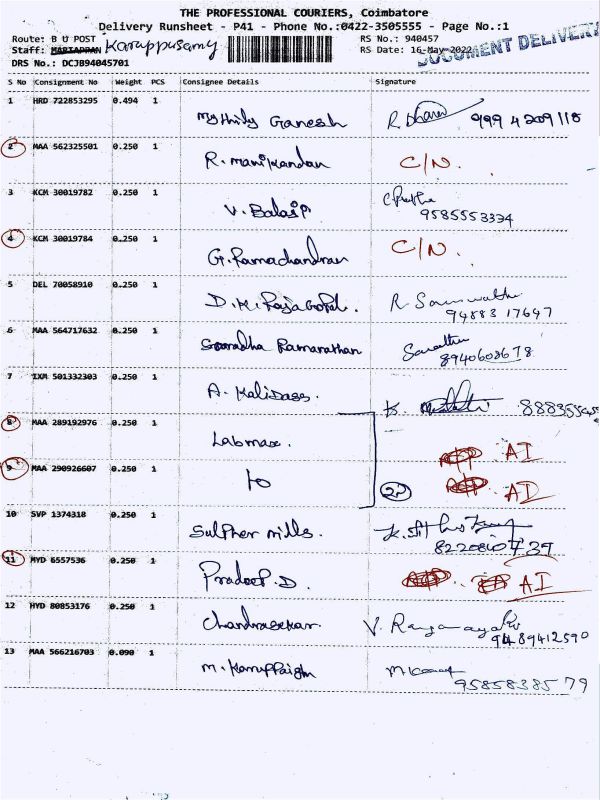 THE PROFESSIONAL COURIERS, Coimbatore
Delivery Runsheet - P41 - Phone No.:0422-3505555 - Page No.:1
Route: B U POST RS No.: 940457
Staff: MARIAPPAN Karuppusamy RS Date: 16-May-2022 DOCUMENT DELIVERY
DRS No.: DCJB94045701
S No Consignment No Weight PCS Consignee Details Signature
1 HRD 722853295 0.494 1 Mythily Ganesh R. 999 4 209 118
2 MAA 562325501 0.250 1 R. Manikandan C/N.
3 KCM 30019782 0.250 1 V. Balaji 9585553334
4 KCM 30019784 0.250 1 G. Ramachandran C/N.
5 DEL 70058910 0.250 1 D.K. Rajagopal. R 94883 17647
6 MAA 564717632 0.250 1 Ramanathan 8940608678
7 IXM 501332303 0.250 1 A. Kalidass.
8 MAA 289192976 0.250 1 Labmax. AI
9 MAA 290926607 0.250 1 to 2P AI
10 SVP 1374318 0.250 1 Sulpher mills. 8220810739
11 HYD 6557536 0.250 1 Pradeep.D. AI
12 HYD 80853176 0.250 1 Chandrasekar. V. 9489412590
13 MAA 566216703 0.090 1 M. Karuppaiah 9585838579